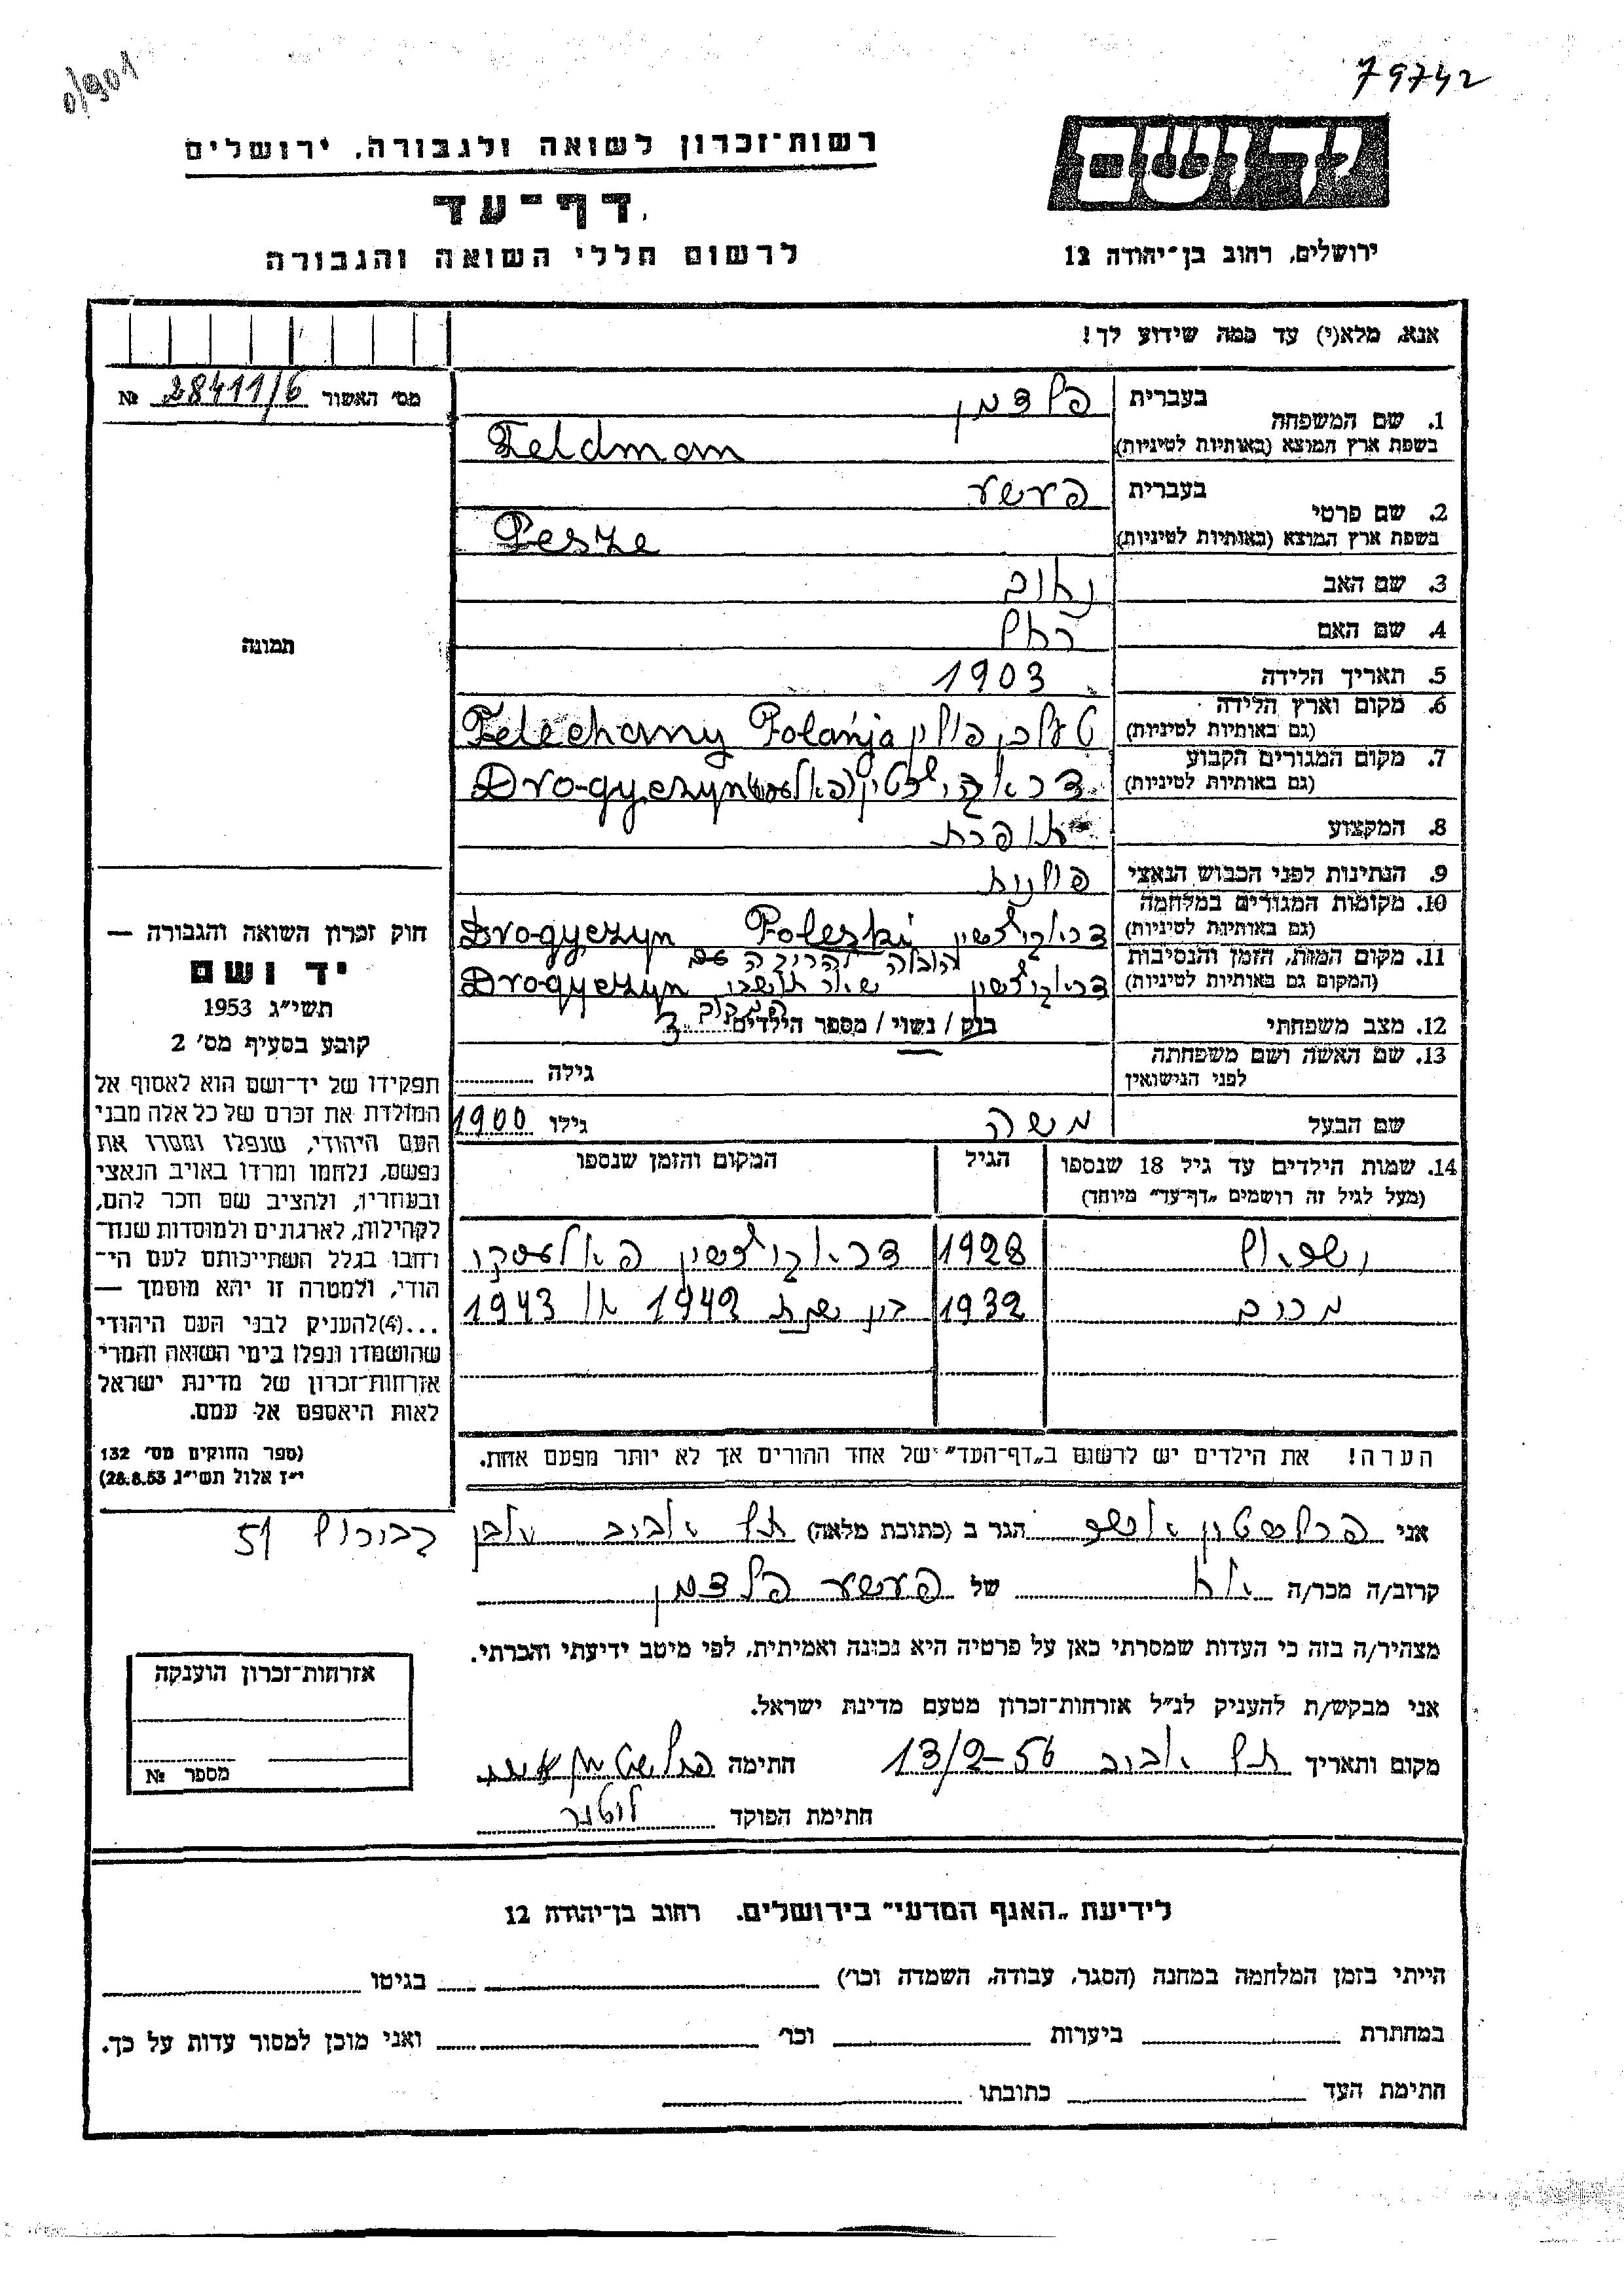 0/901
79742
יד ושם
ירושלים, רחוב בן־יהודה 12
רשות־זכרון לשואה ולגבורה, ירושלים
דף־עד
לרשום חללי השואה והגבורה
אנא, מלא(י) עד כמה שידוע לך!
מס' האשור 28411/6 №
1. שם המשפחה
בעברית פלדמן
בשפת ארץ המוצא (באותיות לטיניות) Feldman
2. שם פרטי
בעברית פעשע
בשפת ארץ המוצא (באותיות לטיניות) Pesze
3. שם האב
4. שם האם רחל
5. תאריך הלידה 1903
6. מקום וארץ הלידה
(גם באותיות לטיניות) פולין Telechany Polańja
7. מקום המגורים הקבוע
(גם באותיות לטיניות) Drogyczyn
8. המקצוע תופרת
9. הנתינות לפני הכבוש הנאצי פולנית
10. מקומות המגורים במלחמה
(גם באותיות לטיניות) דראגיטשין Poleski Drogyczyn
11. מקום המות, הזמן והנסיבות
הובלה להריגה עם
(המקום גם באותיות לטיניות) דראגיטשין שאר תושבי Drogyczyn
12. מצב משפחתי רווק / נשוי / מספר הילדים
13. שם האשה ושם משפחתה
לפני הנישואין
גילה
שם הבעל משה גילו 1900
14. שמות הילדים עד גיל 18 שנספו
(מעל לגיל זה רושמים „דף־עד" מיוחד)
הגיל
המקום והזמן שנספו
1928 דראגיטשין פאלעסקי
1932 בין שנת 1942 או 1943
הערה! את הילדים יש לרשום ב„דף־העד" של אחד ההורים אך לא יותר מפעם אחת.
תמונה
חוק זכרון השואה והגבורה —
יד ושם
תשי"ג 1953
קובע בסעיף מס' 2
תפקידו של יד־ושם הוא לאסוף אל
המולדת את זכרם של כל אלה מבני
העם היהודי, שנפלו ומסרו את
נפשם, נלחמו ומרדו באויב הנאצי
ובעוזריו, ולהציב שם וזכר להם,
לקהילות, לארגונים ולמוסדות שנח־
רבו בגלל השתייכותם לעם הי־
הודי, ולמטרה זו יהא מוסמך —
...(4)להעניק לבני העם היהודי
שהושמדו ונפלו בימי השואה והמרי
אזרחות־זכרון של מדינת ישראל
לאות היאספם אל עמם.
(ספר החוקים מס' 132
י"ז אלול תשי"ג 28.8.53)
אני הגר ב (כתובת מלאה) תל אביב 51
קרוב/ה מכר/ה של פעשע פלדמן
מצהיר/ה בזה כי העדות שמסרתי כאן על פרטיה היא נכונה ואמיתית, לפי מיטב ידיעתי והכרתי.
אני מבקש/ת להעניק לנ"ל אזרחות־זכרון מטעם מדינת ישראל.
מקום ותאריך תל אביב 13/2-56 חתימה
חתימת הפוקד
אזרחות־זכרון הוענקה
מספר №
לידיעת „האגף המדעי" בירושלים. רחוב בן־יהודה 12
הייתי בזמן המלחמה במחנה (הסגר, עבודה, השמדה וכו') בגיטו
במחתרת ביערות וכו' ואני מוכן למסור עדות על כך.
חתימת העד כתובתו